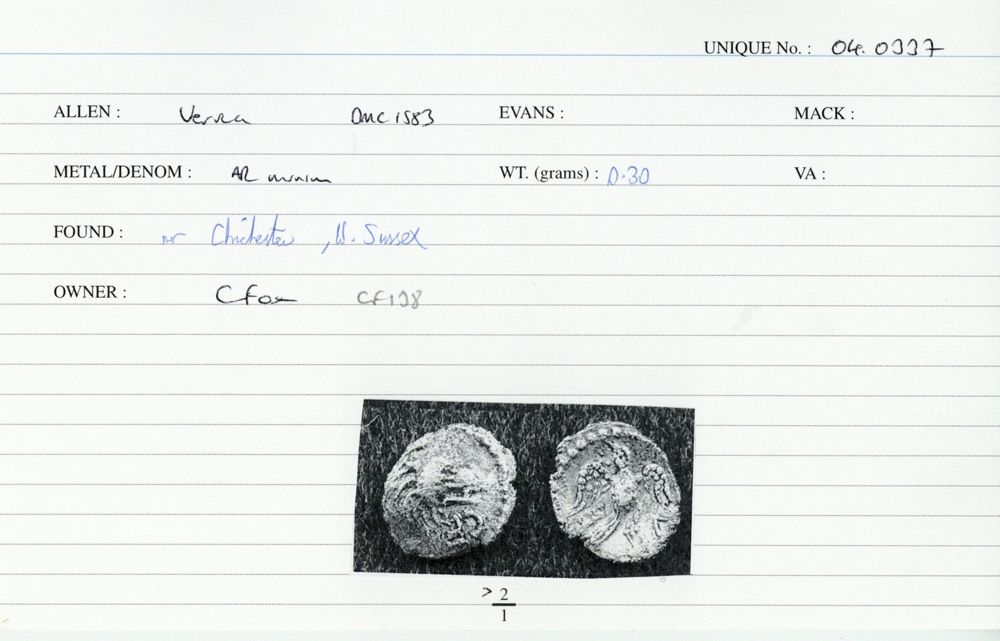 UNIQUE No. : 04.0337
ALLEN : Verica DMC 1583 EVANS : MACK :
METAL/DENOM : AR minim WT. (grams) : 0.30 VA :
FOUND : nr Chichester, W. Sussex
OWNER : C Fox CF138
> 2
1